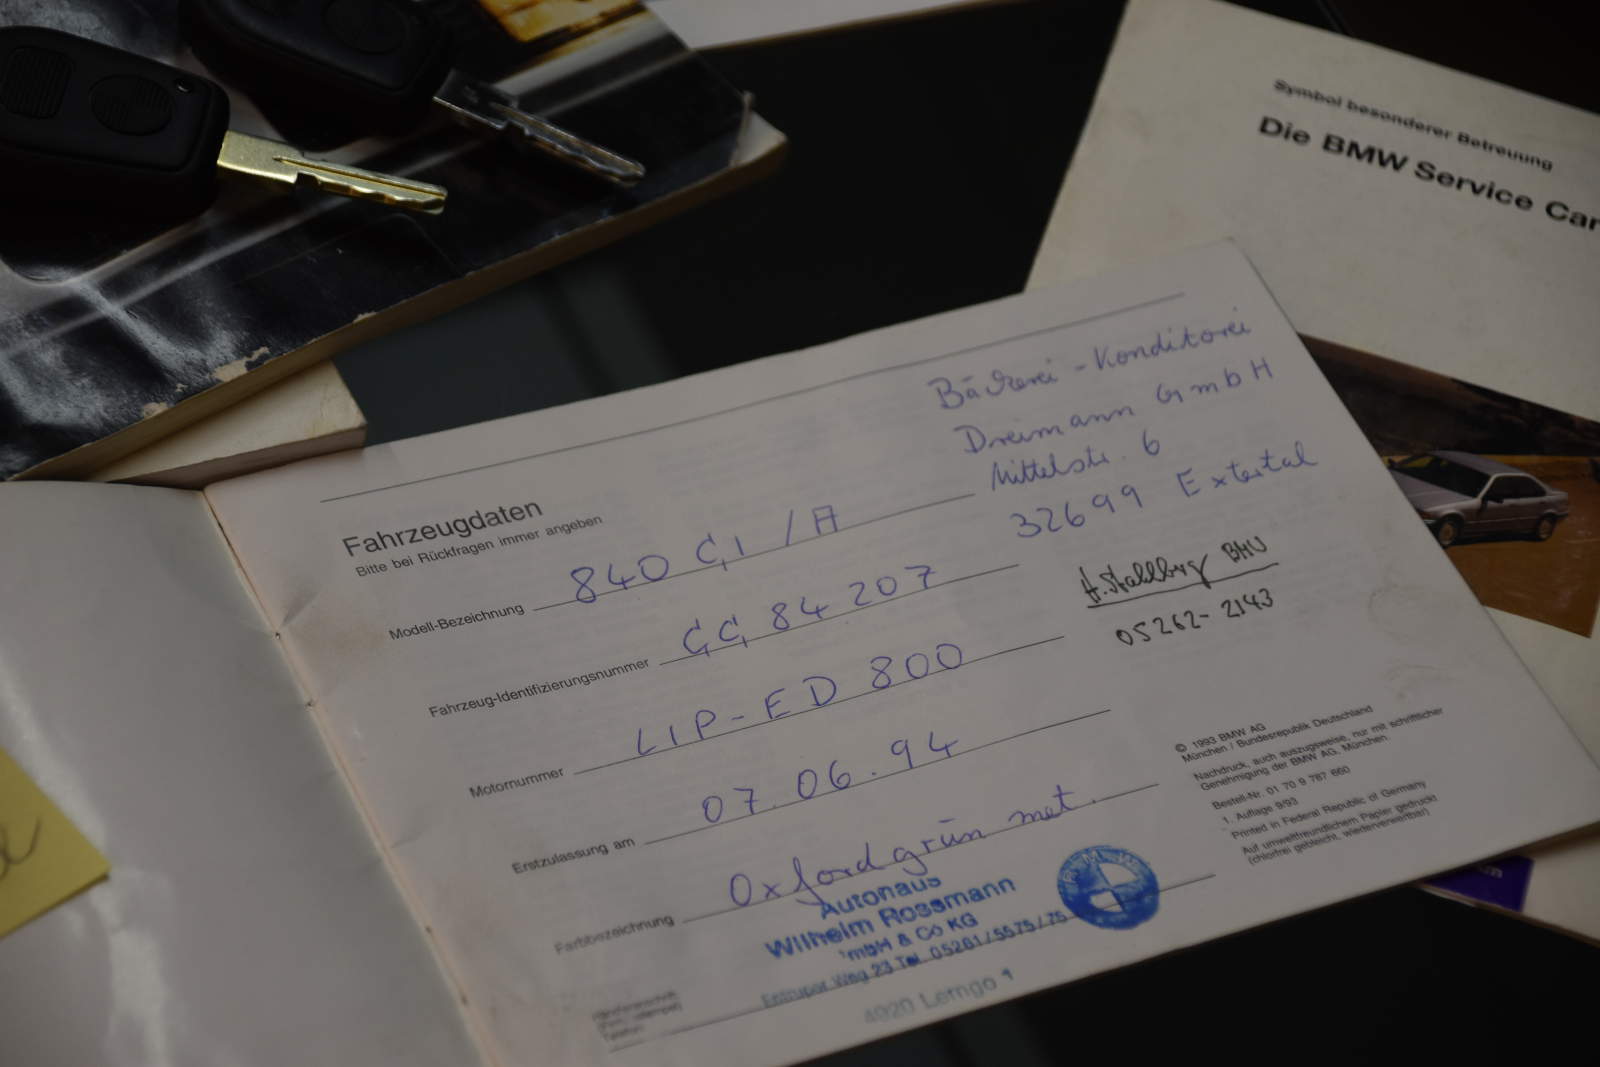 Symbol besonderer Betreuung
Die BMW Service Car
Bäckerei - Konditorei
Dreimann GmbH
Mittelstr. 6
32699 Extertal
Fahrzeugdaten
Bitte bei Rückfragen immer angeben
Modell-Bezeichnung 840 Ci / A
Fahrzeug-Identifizierungsnummer CC 84 207
A. Stahlberg
05262-2143
Motornummer LIP-ED 800
Erstzulassung am 07.06.94
Farbbezeichnung Oxfordgrün met.
© 1993 BMW AG
München / Bundesrepublik Deutschland
Nachdruck, auch auszugsweise, nur mit schriftlicher
Genehmigung der BMW AG, München.
Bestell-Nr. 01 70 9 787 660
1. Auflage 9/93
Printed in Federal Republic of Germany
Auf umweltfreundlichem Papier gedruckt
(chlorfrei gebleicht, wiederverwertbar)
Autohaus
Wilhelm Rossmann
GmbH & Co KG
Entruper Weg 23 Tel. 05261/5575/76
4920 Lemgo 1
Telefon